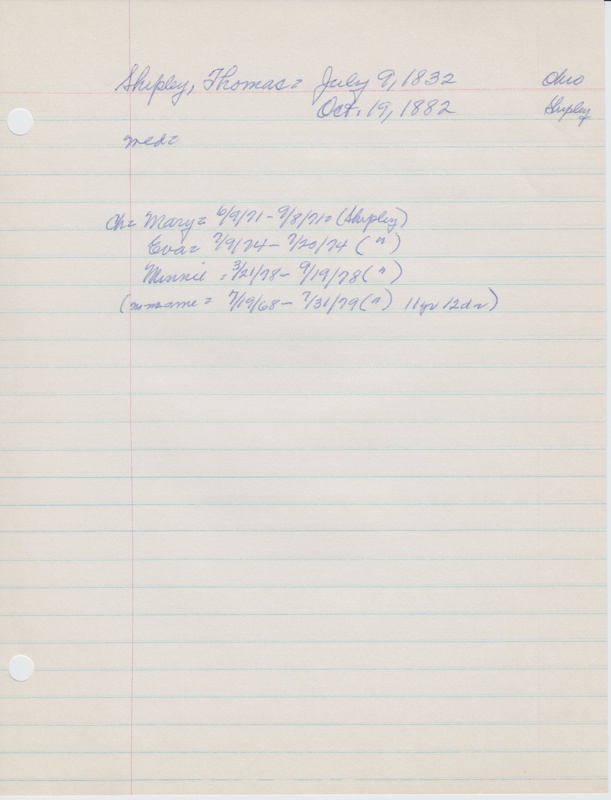 Shipley, Thomas = July 9, 1832 Ohio
Oct. 19, 1882 Shipley
med =
Ch = Mary = 6/9/71 - 9/8/71 = (Shipley)
Eva = 7/9/74 - 7/20/74 (")
Minnie = 3/21/78 - 9/19/78 (")
(no name = 7/19/68 - 7/31/79 (") 11 yr 12 da)